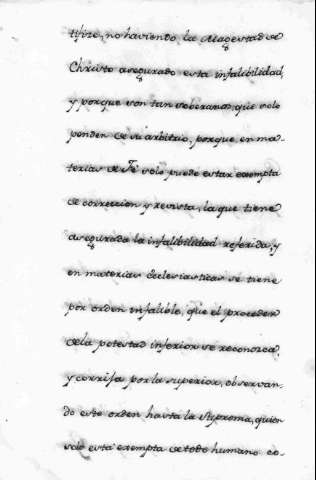 tifize, no haviendo la Magestad de
Christo asegurado esta infalibilidad,
y porque son tan soberanos, que solo
penden de su arbitrio, porque en ma-
terias de Fè solo puede estar exempta
de correccion y revista, la que tiene
asegurada la infalibilidad referida, y
en materias Ecclesiasticas se tiene
por orden infalible, que el proceder
de la potestad inferior se reconosca,
y corrija por la superior, observan-
do este orden hasta la Suprema, quien
solo està exempta de todo humano co-